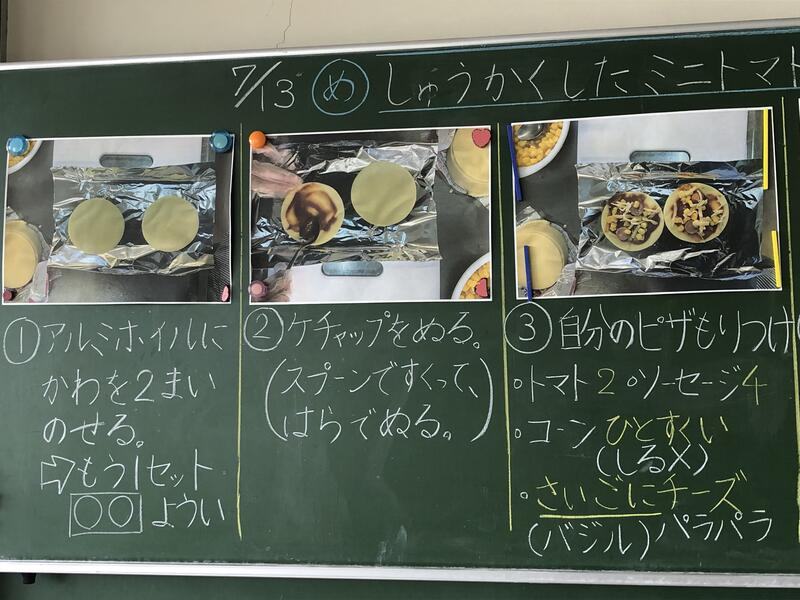 7/13 め しゅうかくしたミニトマト
①アルミホイルに
かわを2まい
のせる。
⇨もう1セット
○○ ようい
②ケチャップをぬる。
(スプーンですくって、
はらでぬる。)
③自分のピザもりつけ
・トマト2・ソーセージ4
・コーン ひとすくい
(しる×)
・さいごにチーズ
(バジル)パラパラ